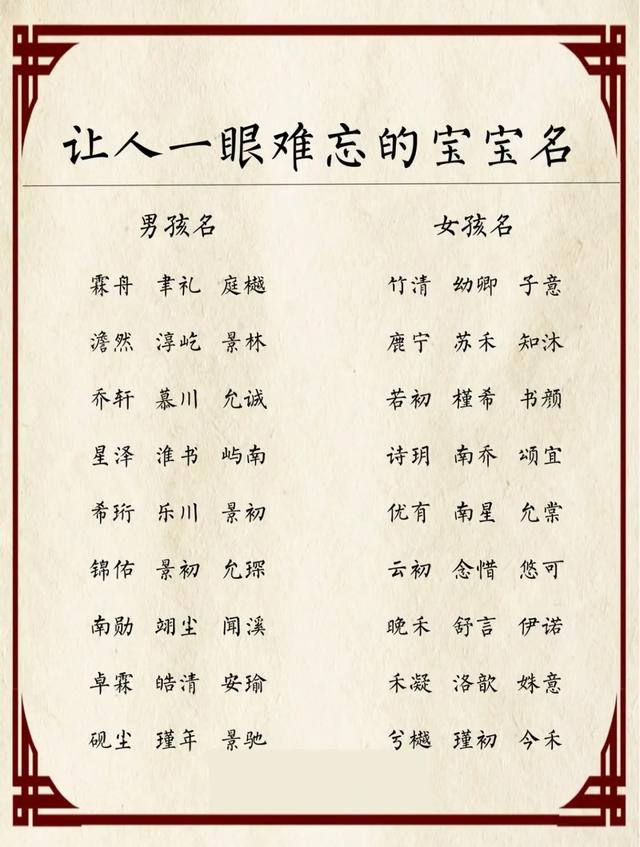 让人一眼难忘的宝宝名
男孩名 女孩名
霖舟 聿礼 庭樾 竹清 幼卿 子意
澹然 淳屹 景林 鹿宁 苏禾 知沐
乔轩 慕川 允诚 若初 槿希 书颜
星泽 淮书 屿南 诗玥 南乔 颂宜
希珩 乐川 景初 优有 南星 允棠
锦佑 景初 允琛 云初 念惜 悠可
南勋 翊尘 闻溪 晚禾 舒言 伊诺
卓霖 皓清 安瑜 禾凝 洛歆 姝意
砚尘 瑾年 景驰 兮樾 瑾初 今禾